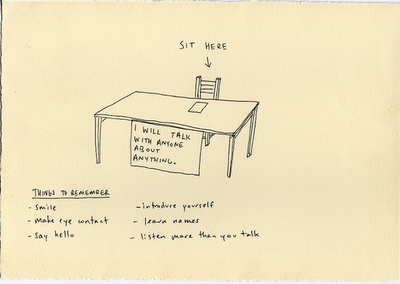 SIT HERE
I WILL TALK
WITH ANYONE
ABOUT
ANYTHING.
THINGS TO REMEMBER
- smile
- make eye contact
- say hello
- introduce yourself
- learn names
- listen more than you talk